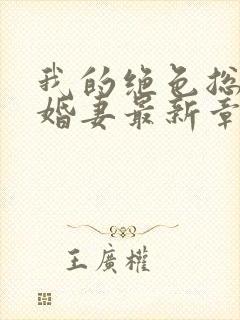 我的绝色总
婚妻最新章
王廣權